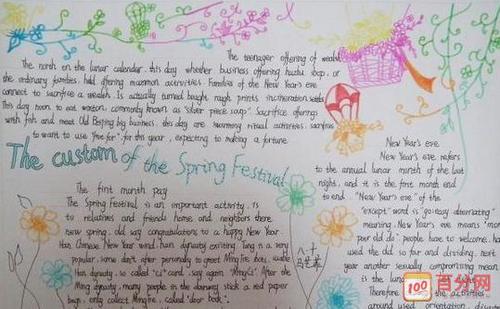 The teenager offering of wealth
The north on the lunar calendar, this day whether business offering hushi shop, or
the ordinary families, hold offering measmon activities. Families of the New Year's eve
connect to sacrifice a wealth. Is actually turned bought rough prints incineration
This day noon to eat wonton, commonly known as "silver piece soup". Sacrifice offerings
with fish and meet Old Beijing big business, this day are hommony ritual activities, sacrifice
to want to use "five for", for this year, expecting to making a fortune.
The custom of the Spring Festival
The first month pay
The Spring Festival is an important activity, is
to relatives and friends home and neighbors there
new spring, old say congratulations to a happy New
Han Chinese New Year wind, han dynasty existing. Tang is a very
popular, some don't after personally to greet
Han dynasty, so called "ci" card, say again "Mingci". After the
Ming dynasty, many people in the doorway stick a red paper
bags, only collect called "door book".
New Year's eve
New Year's eve refers
to the annual lunar month of the last
night, and it is the first month end
to end. "New Year's eve" of the
"except" word is "go; easy; alternating"
meaning, New Year's eve means "moon
poor old do" people have to welcome
used the old so far and dividing, next
year another sexually compromising mean
is the lunar
Therefore
the activities
around used orientation,
八十
百分网
100